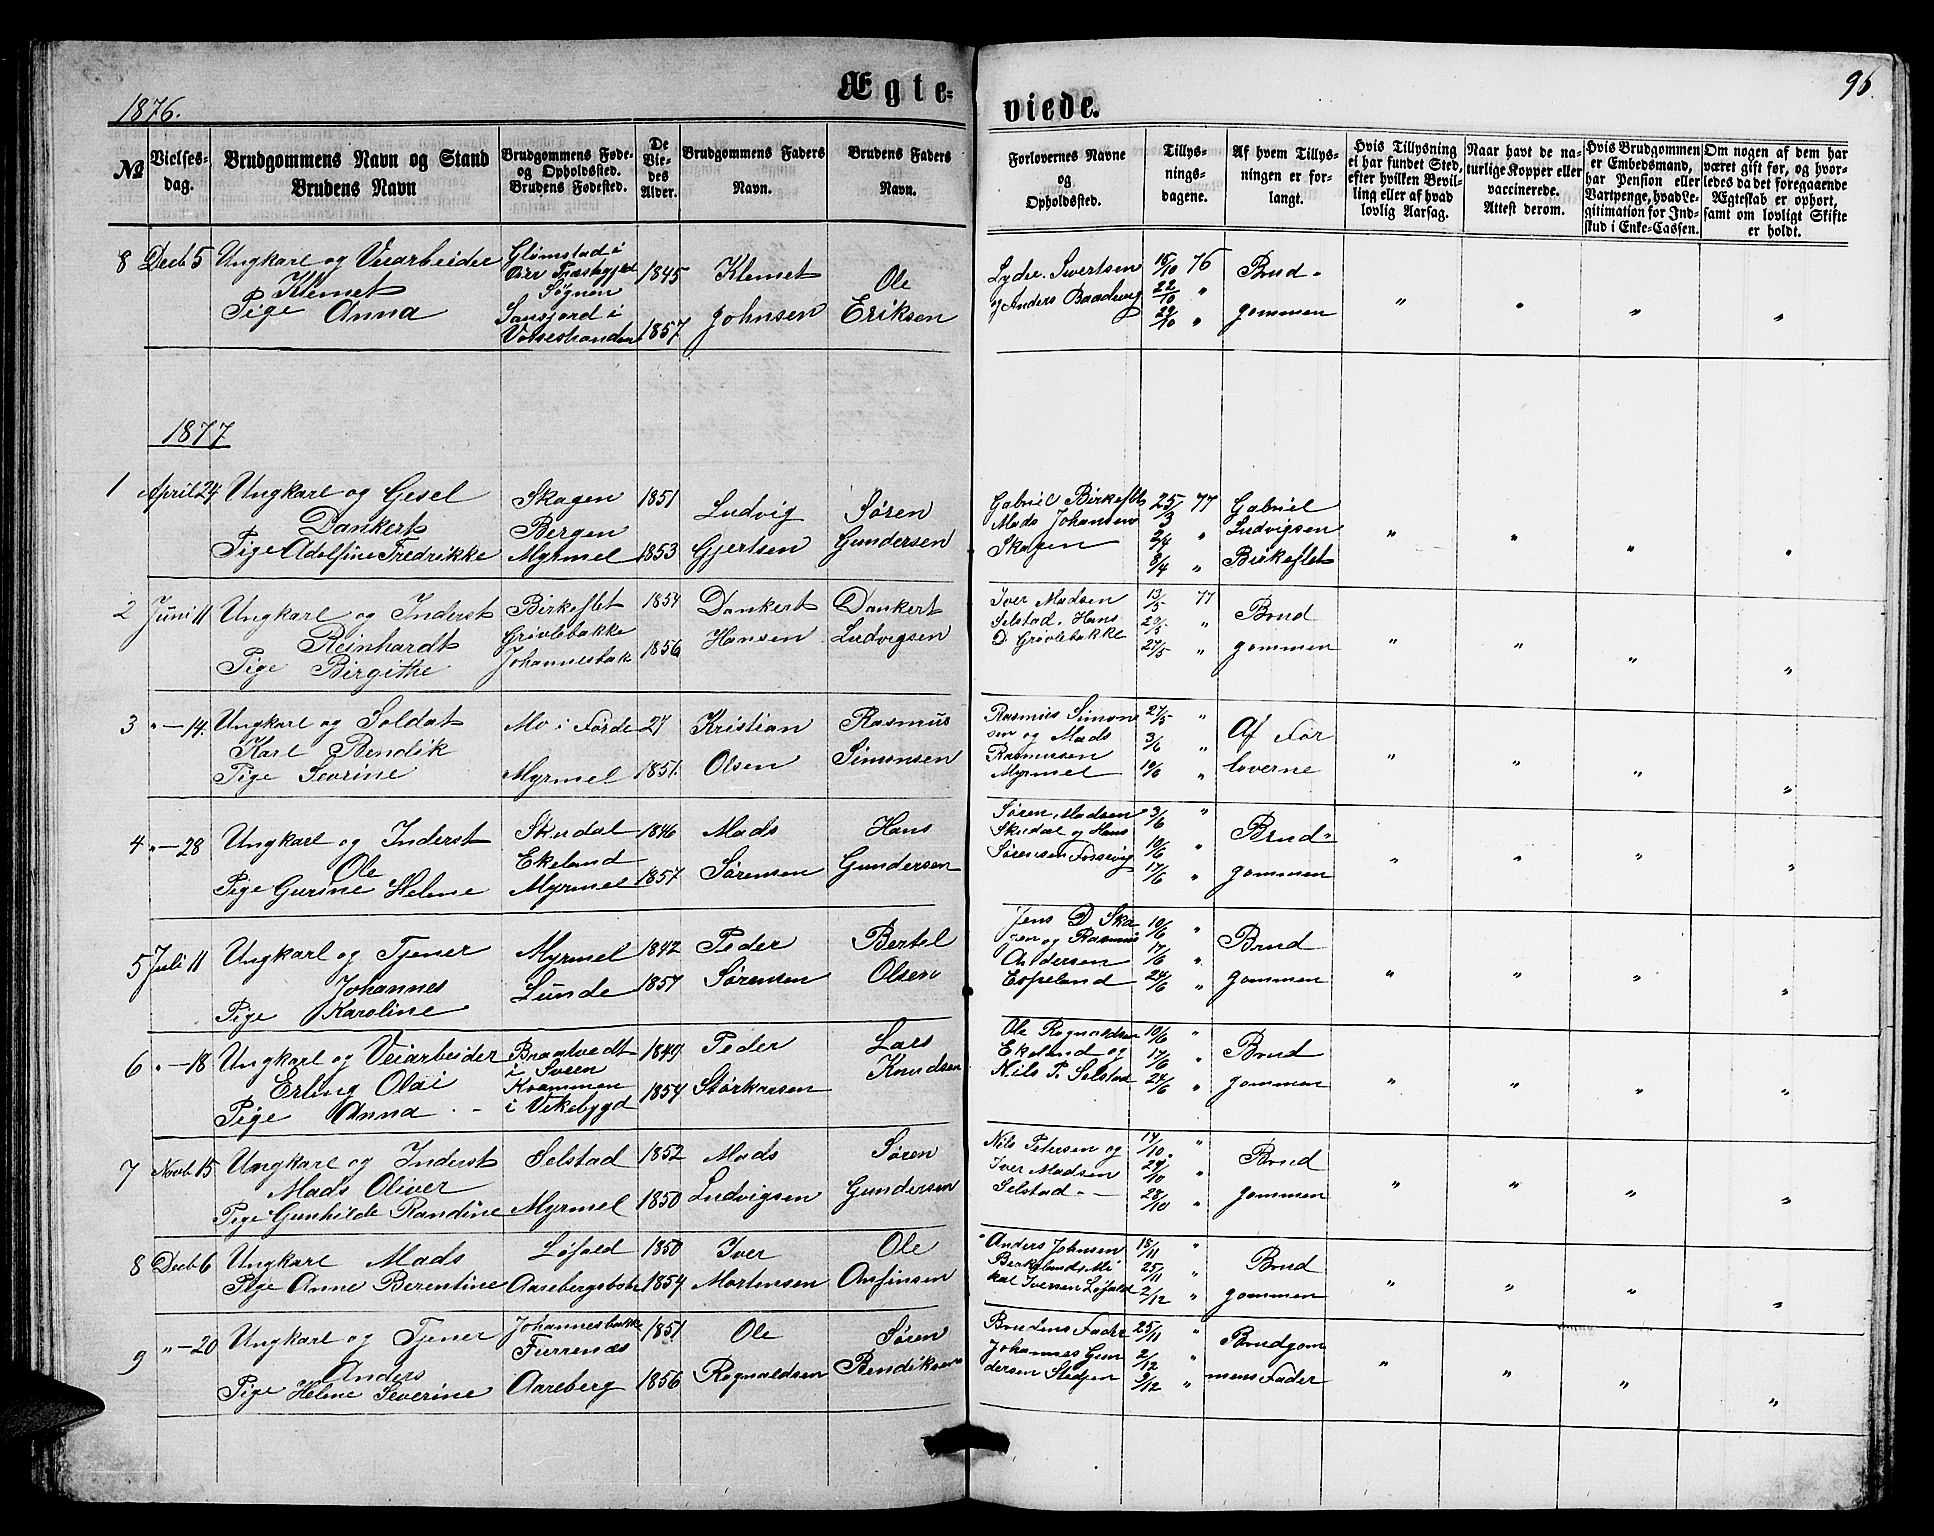 Ægte-
viede.
1876.
96.
№
Vielses-
dag.
Brudgommens Navn og Stand
Brudens Navn
Brudgommens Føde-
og Opholdssted.
Brudens Fødested.
De
Vie-
des
Alder.
Brudgommens Faders
Navn.
Brudens Faders
Navn.
Forlovernes Navne
og
Opholdssted.
Tillys-
nings-
dagene.
Af hvem Tillys-
ningen er for-
langt.
Hvis Tillysning
ei har fundet Sted,
efter hvilken Bevil-
ling eller af hvad
lovlig Aarsag.
Naar havt de na-
turlige Kopper eller
vaccinerede.
Attest derom.
Hvis Brudgommen
er Embedsmand,
har Pension eller
Vartpenge, hvad Le-
gitimation for Ind-
skud i Enke-Cassen.
Om nogen af dem har
været gift før, og hvor-
ledes da det foregaaende
Ægteskab er ophørt,
samt om lovligt Skifte
er holdt.
8 Decb 5 Ungkarl og Veiarbeider
Klemet
Pige Anna
Glømstad i
Søgnen
i
1845
1857
Klemet
Johnsen
Ole
Eriksen
Sivertsen
og Anders
15/10 76
22/10 "
29/10 "
Brud-
gommen
" " " "
1877
1 April 24 Ungkarl og Gesel
Dankert
Pige Adolfine Fredrikke
Skagen
Bergen
Myrmel
1851
1853
Ludvig
Gjertsen
Søren
Gundersen
Gabriel Birkeflet
Mads Johansen
Skagen
25/3 77
2/4 "
8/4 "
Gabriel
Ludvigsen
Birkeflet
" " " "
2 Juni 11 Ungkarl og Inderst
Reinhardt
Pige Birgithe
Birkeflet
Grøvlebakke
Johannesbak
1854
1856
Dankert
Hansen
Dankert
Ludvigsen
Iver Madsen
Selstad, Hans
D. Grøvlebakke
13/5 77
"
27/5 "
Brud
gommen
" " " "
3 " — 14. Ungkarl og Soldat
Karl Bendik
Pige Severine
Mo i Førde
Myrmel
27
1851.
Kristian
Olsen
Rasmus
Simonsen
Rasmus Simon
sen og Mads
Rasmusen
Myrmel
27/5 "
3/6 "
10/6 "
Af For
loverne
" " " "
4 " — 28 Ungkarl og Inderst
Ole
Pige Gurine Helene
Skudal
Ekeland
Myrmel
1846
1857
Mads
Sørensen
Hans
Gundersen
Søren Madsen
Skudal og Hans
Sørensen Fossevig
3/6 "
10/6 "
17/6 "
Brud-
gommen
" " " "
5 Juli 11 Ungkarl og Tjener
Johannes
Pige Karoline
Myrmel
Lunde
1842
1857
Peder
Sørensen
Bertel
Olsen
Jens D Ska
gen og Rasmus
Andersen
Espeland
10/6 "
17/6 "
24/6 "
Brud
gommen
" " " "
6 " — 18 Ungkarl og Veiarbeider
Erling Olai
Pige Anna
Braatvedt
i Sveen
Kvammen
i Vikebygd
1849
1854
Peder
Størkersen
Lars
Knudsen
Ole Rognaldsen
Ekeland og
Nils P. Selstad
10/6 "
17/6 "
24/6 "
Brud
gommen
" " " "
7 Novb 15 Ungkarl og Inderst
Mads Oliver
Pige Gunhilde Randine
Selstad
Myrmel
1852
1850
Mads
Ludvigsen
Søren
Gundersen
Nils Petersen og
Iver Madsen
Selstad
14/10 "
"
28/10 "
Brud
gommen
" " " "
8 Decb 6 Ungkarl Mads
Pige Anne Berentine
Løfald
1850
1854
Iver
Mortensen
Ole
Anfinsen
Anders Johnsen
Birkelands Mi
kal Iversen Løfald
18/11 "
25/11 "
2/12 "
Brud
gommen
" " " "
9 " — 20 Ungkarl og Tjener
Anders
Pige Helene Severine
Johannesbakke
Furrenæs
Aareberg
1851
1856
Ole
Rognaldsen
Søren
Bendiksen
Brudens Fader
Johannes Gun
dersen Stedjen
25/11 "
2/12 "
9/12 "
Brudgom
mens Fader
" " " "